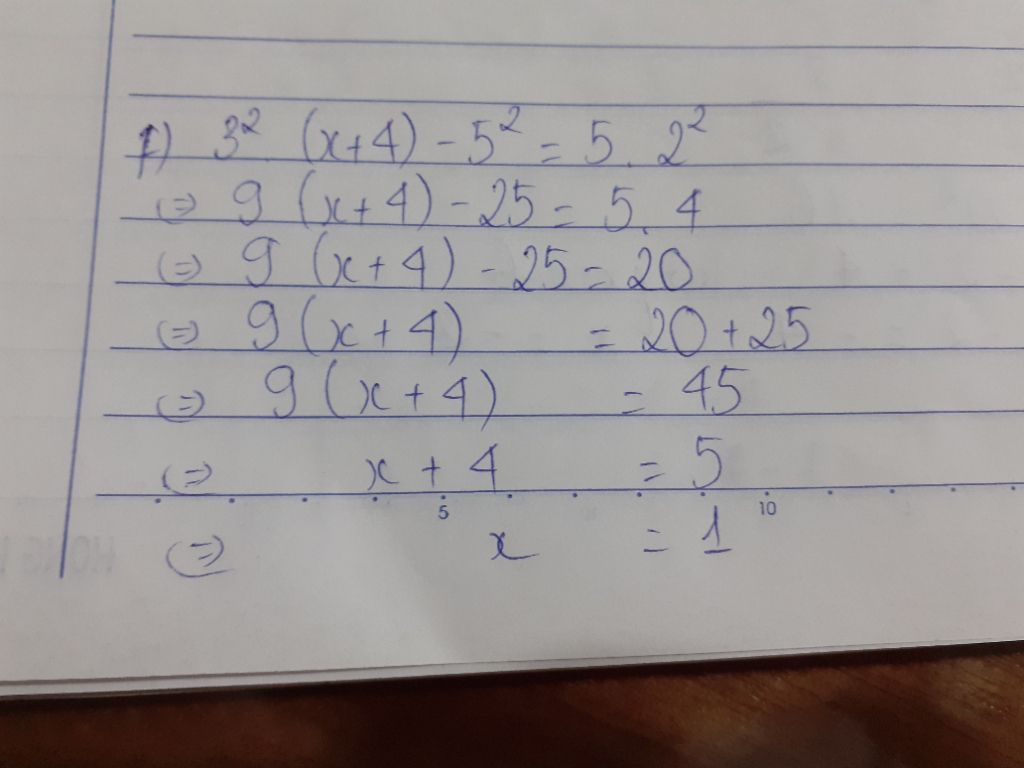 f) 3² (x+4) - 5² = 5 . 2²
(=) 9 (x+4) - 25 = 5 . 4
(=) 9 (x+4) - 25 = 20
(=) 9 (x+4) = 20 + 25
(=) 9 (x+4) = 45
(=) x + 4 = 5
5 10
(=) x = 1